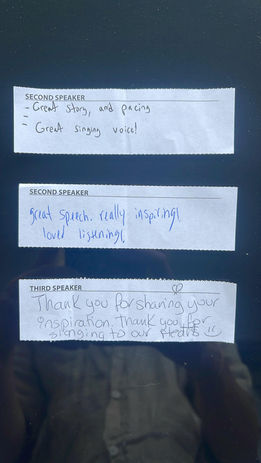 SECOND SPEAKER
- Great story, and pacing
-
- Great singing voice!
SECOND SPEAKER
great speech. really inspiring!
loved listening!
THIRD SPEAKER
Thank you for sharing your
inspiration. Thank you for
singing to our hearts